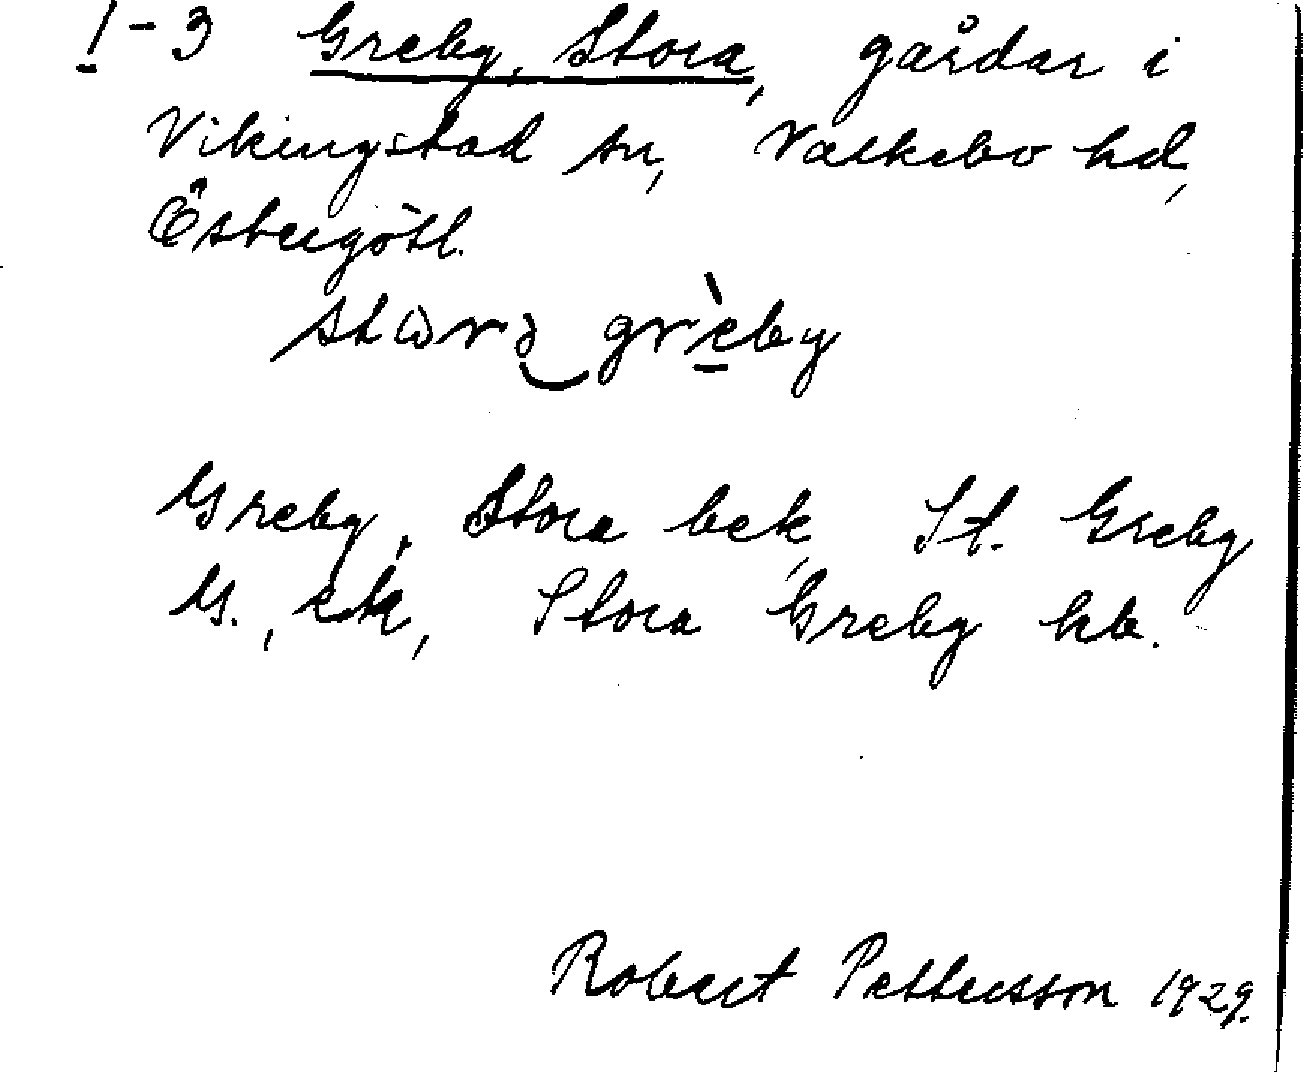 1-3 Greby, Stora, gårdar i
Vikingstad sn, Valkebo hd,
Östergötl.
Greby, Stora bek, St. Greby
G., ek, Stora Greby kb.
Robert Pettersson 1929.